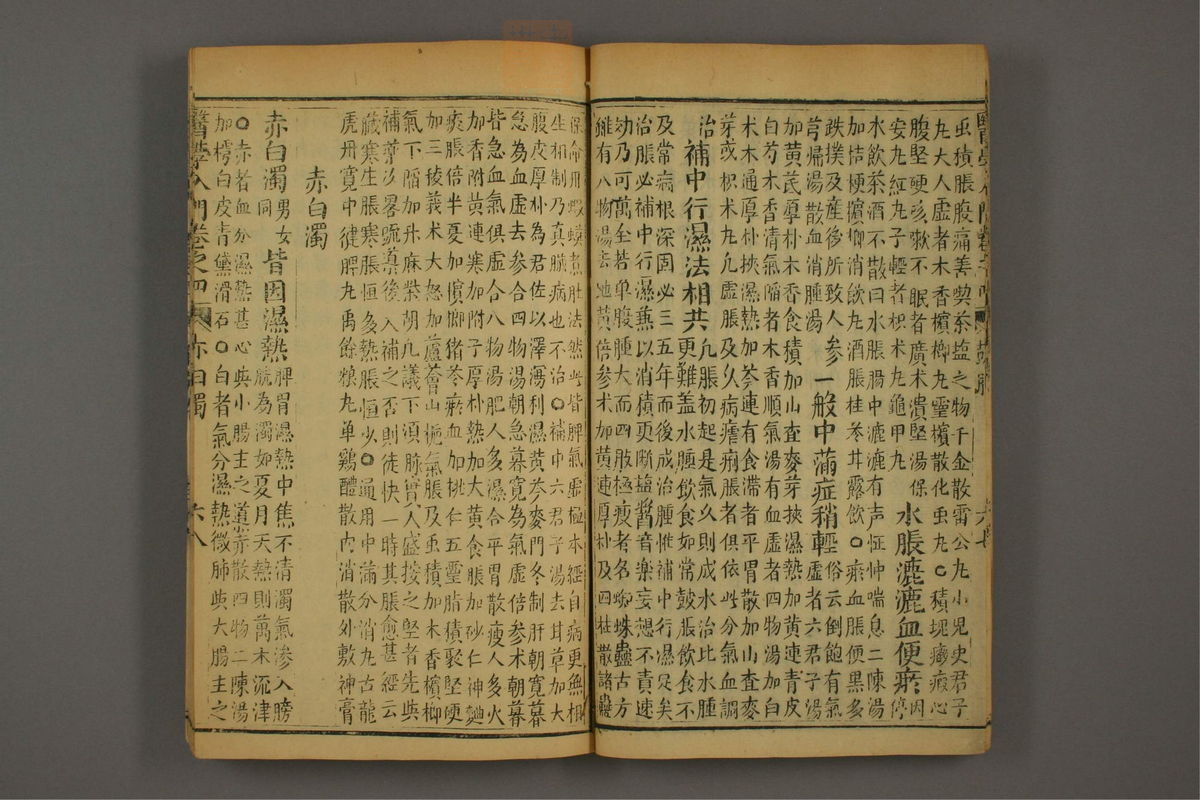 虫積脹腹痛善喫茶塩之物千金散雷公丸小兒史君子
丸大人虛者木香檳榔丸靈檳散化虫丸○積塊癥瘕心
腹堅硬咳嗽不眠者廣朮潰堅湯保
安丸紅丸子輕者枳朮丸龜甲丸 水脹漉漉血便瘀 因停
水飲茶酒不散曰水脹腸中漉漉有声怔忡喘息二陳湯
加桔梗檳榔消飲丸酒脹桂苓甘露飲○瘀血脹便黑多
跌撲及産後所致人參
芎歸湯散血消腫湯 一般中蒲症稍輕 俗云倒飽有氣虛者六君子湯
加黃芪厚朴木香食積加山查麥芽挾濕熱加黃連青皮
白芍木香清氣陽者木香順氣湯有血虛者四物湯加白
朮木通厚朴挾濕熱加芩連有食滯者平胃散加山查麥
芽或枳朮丸凡虛脹及久病瘧痢脹者俱依此分氣血調
治 補中行濕法相共 凡脹初起是氣久則成水治比水腫
更難蓋水腫飲食如常鼓脹飲食不
及常病根深固必三五年而後成治腫惟補中行濕足矣
治脹必補中行濕兼以消積更斷塩醬音楽妄想不責速
効乃可萬全若单腹腫大而四肢極瘦者名蜘蛛蠱古方
雖有八物湯去地黃倍參朮加黃連厚朴及四柱散諸
保命用蝦蟆煮肚法然此皆脾氣虛極本經自病更無相
生相制乃真臟病也不治○補中六君子湯去甘草加大
腹皮厚朴為君佐以澤瀉利濕黃芩麥門冬制肝朝寬暮
急為血虛去參合四物湯朝急暮寬為氣虛倍參朮朝暮
皆急血氣俱虛合八物湯肥人多濕合平胃散瘦人多火
加香附黃連寒加附子厚朴熱加大黃食脹加砂仁神麯
痰脹倍半夏加檳榔猪苓瘀血加桃仁五靈脂積聚堅硬
加三稜莪朮大怒加蘆薈山梔氣脹及虫積加木香檳榔
氣下陷加升麻柴胡凡議下須脉實人盛按之堅者先與
補薬次畧疏薬後入補之否則徒快一時其脹愈甚經云
藏寒生脹寒脹恒多熱脹恒少○通用中滿分消丸古龍
虎丹寬中健脾丸禹餘粮丸单鷄醴散内消散外敷神膏
赤白濁
赤白濁 男女同 皆因濕熱 脾胃濕熱中焦不清濁氣滲入膀
胱為濁如夏月天熱則萬木流津
○赤者血分濕熱甚心與小腸主之導赤散四物二陳湯
加樗白皮青黛滑石○白者氣分濕熱微肺與大腸主之
醫學入門卷之四 赤白濁 六八